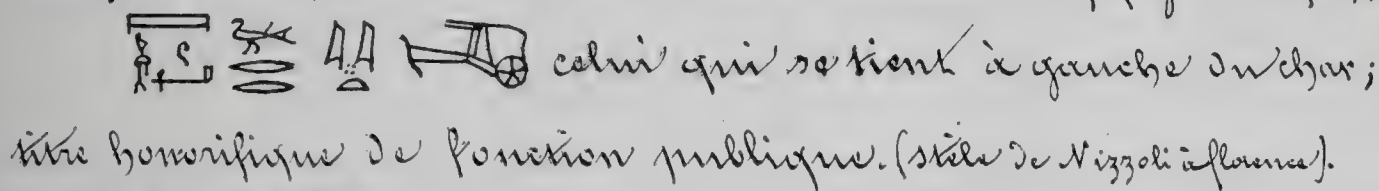 celui qui se tient à gauche du char;
titre honorifique de fonction publique. (stèle de Nizzoli à florence).